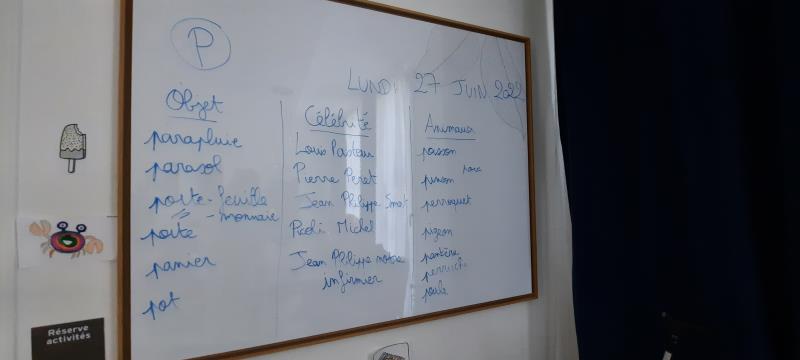 P
LUNDI 27 JUIN 2022
Objet
parapluie
parasol
porte-feuille
" - monnaie
porte
panier
pot
Célébrité
Louis Pasteur
Pierre Peret
Jean Philippe Smet
Picoli Michel
Jean Philippe notre
infirmier
Animaux
poisson
paon
pinson
perroquet
pigeon
panthère
perruche
poule
Réserve
activités